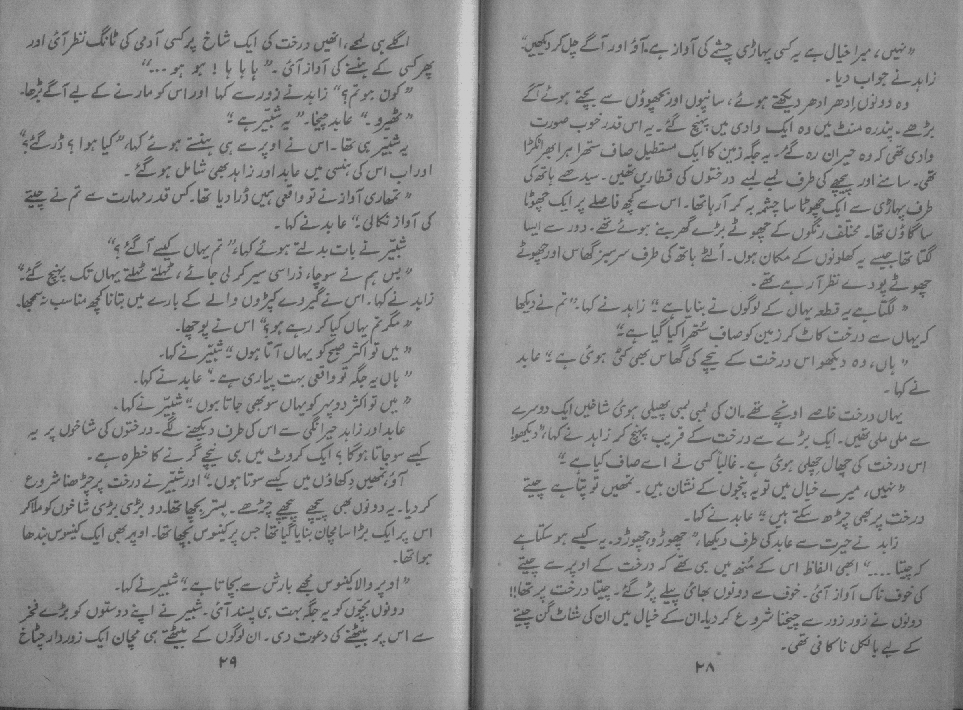 "نہیں، میرا خیال ہے یہ کسی پہاڑی چشمے کی آواز ہے۔ آؤ اور آگے چل کر دیکھیں۔"
زاہد نے جواب دیا۔
وہ دونوں اِدھر اُدھر دیکھتے ہوئے، سانپوں اور بچھوؤں سے بچتے ہوئے آگے
بڑھے۔ پندرہ منٹ میں وہ ایک وادی میں پہنچ گئے۔ یہ اس قدر خوب صورت
وادی تھی کہ وہ حیران رہ گئے۔ یہ جگہ زمین کا ایک مستطیل صاف ستھرا ہرا بھرا ٹکڑا
تھی۔ سامنے اور پیچھے کی طرف لمبے لمبے درختوں کی قطاریں تھیں۔ سیدھے ہاتھ کی
طرف پہاڑی سے ایک چھوٹا سا چشمہ بہ کر آ رہا تھا۔ اس سے کچھ فاصلے پر ایک چھوٹا
سا گاؤں تھا۔ مختلف رنگوں کے چھوٹے بڑے گھر بنے ہوئے تھے۔ دور سے ایسا
لگتا تھا جیسے یہ کھلونوں کے مکان ہوں۔ اُلٹے ہاتھ کی طرف سرسبز گھاس اور چھوٹے
چھوٹے پودے نظر آ رہے تھے۔
"لگتا ہے یہ قطعہ یہاں کے لوگوں نے بنایا ہے۔" زاہد نے کہا۔ "تم نے دیکھا
کہ یہاں سے درخت کاٹ کر زمین کو صاف سُتھرا کیا گیا ہے۔"
"ہاں، وہ دیکھو اس درخت کے نیچے کی گھاس بھی کٹی ہوئی ہے۔" عابد
نے کہا۔
یہاں درخت خاصے اونچے تھے۔ ان کی لمبی لمبی پھیلی ہوئی شاخیں ایک دوسرے
سے ملی ملی تھیں۔ ایک بڑے سے درخت کے قریب پہنچ کر زاہد نے کہا، "دیکھو!
اس درخت کی چھال چھلی ہوئی ہے۔ غالباً کسی نے اسے صاف کیا ہے۔"
"نہیں، میرے خیال میں تو یہ پنجوں کے نشان ہیں۔ تمھیں تو پتا ہے چیتے
درخت پر بھی چڑھ سکتے ہیں۔" عابد نے کہا۔
زاہد نے حیرت سے عابد کی طرف دیکھا، "چھوڑو، چھوڑو۔ یہ کیسے ہو سکتا ہے
کہ چیتا ...." ابھی الفاظ اس کے مُنھ میں ہی تھے کہ درخت کے اوپر سے چیتے
کی خوف ناک آواز آئی۔ خوف سے دونوں بھائی پیلے پڑ گئے۔ چیتا درخت پر تھا!!
دونوں نے زور زور سے چیخنا شروع کر دیا۔ ان کے خیال میں ان کی شاٹ گن چیتے
کے لیے بالکل ناکافی تھی۔
۲۸
اگلے ہی لمحے، انھیں درخت کی ایک شاخ پر کسی آدمی کی ٹانگ نظر آئی اور
پھر کسی کے ہنسنے کی آواز آئی۔ "ہا ہا ہا! ہو ہو ..."
"کون ہو تم؟" زاہد نے زور سے کہا اور اس کو مارنے کے لیے آگے بڑھا۔
"ٹھیرو۔" عابد چیخا۔ "یہ شبیّر ہے۔"
یہ شبیّر ہی تھا۔ اس نے اوپر سے ہی ہنستے ہوئے کہا، "کیا ہوا؟ ڈر گئے؟"
اور اب اس کی ہنسی میں عابد اور زاہد بھی شامل ہو گئے۔
"تمھاری آواز نے تو واقعی ہمیں ڈرا دیا تھا۔ کس قدر مہارت سے تم نے چیتے
کی آواز نکالی۔" عابد نے کہا۔
شبیّر نے بات بدلتے ہوئے کہا، "تم یہاں کیسے آ گئے؟"
"بس ہم نے سوچا، ذرا سی سیر کر لی جائے، ٹہلتے ٹہلتے یہاں تک پہنچ گئے۔"
زاہد نے کہا۔ اس نے گیروے کپڑوں والے کے بارے میں بتانا کچھ مناسب نہ سمجھا۔
"مگر تم یہاں کیا کر رہے ہو؟" اس نے پوچھا۔
"میں تو اکثر صبح کو یہاں آتا ہوں۔" شبیّر نے کہا۔
"ہاں یہ جگہ تو واقعی بہت پیاری ہے۔" عابد نے کہا۔
"میں تو اکثر دوپہر کو یہاں سو بھی جاتا ہوں۔" شبیّر نے کہا۔
عابد اور زاہد حیرانگی سے اس کی طرف دیکھنے لگے۔ درختوں کی شاخوں پر یہ
کیسے سو جاتا ہوگا؟ ایک کروٹ میں ہی نیچے گرنے کا خطرہ ہے۔
آؤ، تمھیں دِکھاؤں میں کیسے سوتا ہوں۔" اور شبیّر نے درخت پر چڑھنا شروع
کر دیا۔ یہ دونوں بھی پیچھے پیچھے چڑھے۔ بستر بچھا تھا۔ دو بڑی بڑی شاخوں کو ملا کر
اس پر ایک بڑا سا مچان بنایا گیا تھا جس پر کینوس بچھا تھا۔ اوپر بھی ایک کینوس بندھا
ہوا تھا۔
"اوپر والا کینوس مجھے بارش سے بچاتا ہے۔" شبیّر نے کہا۔
دونوں بچّوں کو یہ جگہ بہت ہی پسند آئی۔ شبیّر نے اپنے دوستوں کو بڑے فخر
سے اس پر بیٹھنے کی دعوت دی۔ ان لوگوں کے بیٹھتے ہی مچان ایک زوردار چٹاخ
۲۹